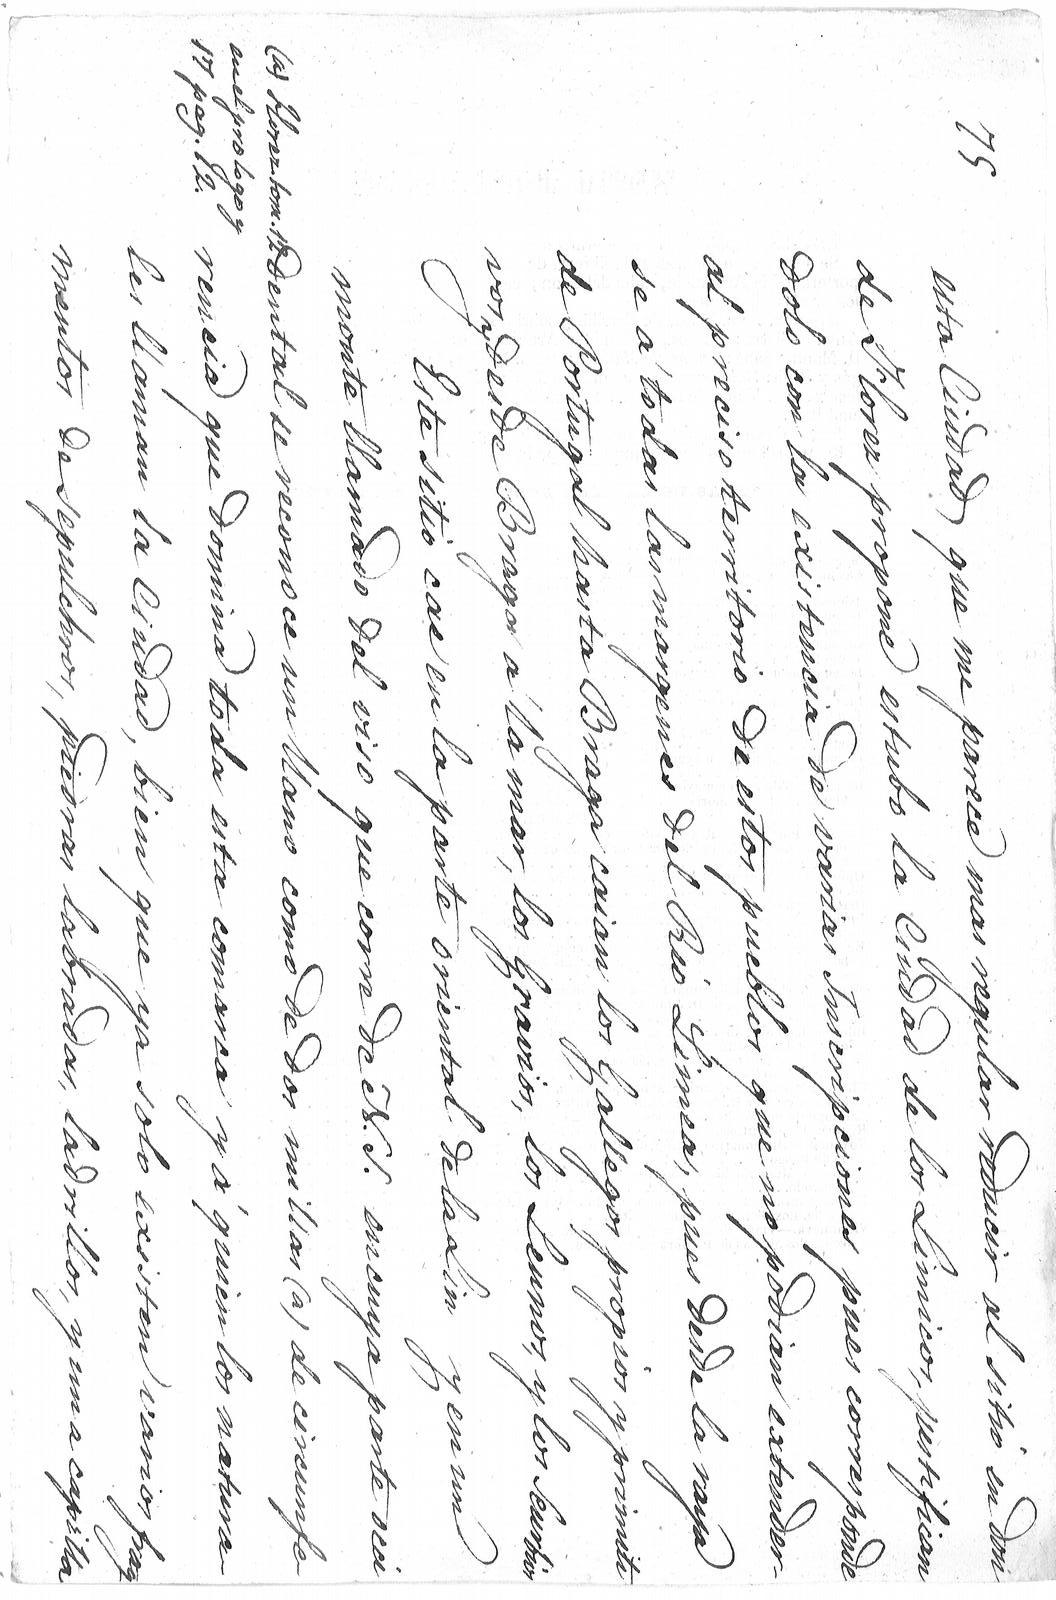 75
esta Ciudad, que me parece mas regular reducir al sitio en don
de Florez propone estubo la Ciudad de los Limicos, justifican
dolo con la existencia de varias Inscripciones pues corresponde
al preciso territorio de estos pueblos que no podian extender-
se a' todas las margenes del Rio Limea, pues desde la raya
de Portugal hasta Braga caian los Gallegos propios y primiti
vos, y desde Braga a' la mar, los Gravios, los Leunos, y los Seurbios
Este sitio cae en la parte oriental de la Lin y en un
monte llamado del viso que corre de N. S. en cuya parte occi
dental se reconoce un llano como de dos millas (a) de circunfe
rencia que domina toda esta comarca y a' quien los natura-
les llaman la Ciudad, bien que ya solo existen varios frag
mentos de sepulchros, piedras labradas, ladrillos, y una capilla
(a) Florez tom. 17
en el prologo y
17 pag. 12.